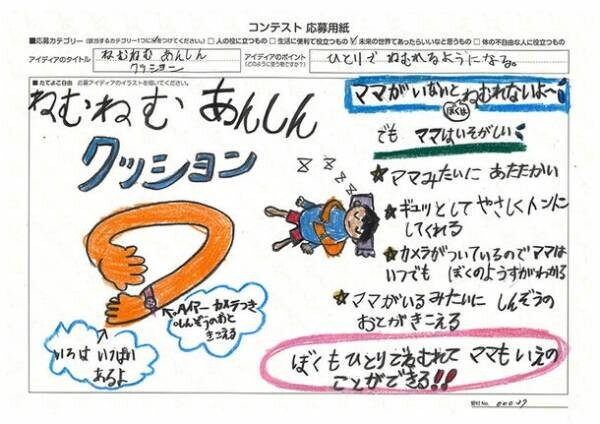 コンテスト 応募用紙
■応募カテゴリー(該当するカテゴリー1つに✓をつけてください。) □人の役に立つもの □生活に便利で役立つもの ☑未来の世界であったらいいなと思うもの □体の不自由な人に役立つもの
アイディアのタイトル
ねむねむ あんしん
クッション
アイディアのポイント
(どのように使う物ですか?)
ひとりで ねむれるようになる。
ねむねむ あんしん
クッション
ママがいないとねむれないよ〜
ぼくは
でも ママはいそがしい
★ママみたいに あたたかい
★ギュッとして やさしくトントン
してくれる
★カメラがついているのでママは
いつでも ぼくのようすがわかる
★ママがいるみたいに しんぞうの
おとがきこえる
カメラつき
しんぞうのおと
きこえる
いろは いっぱい
あるよ
ぼくもひとりでねむれて ママもいえの
ことができる!!